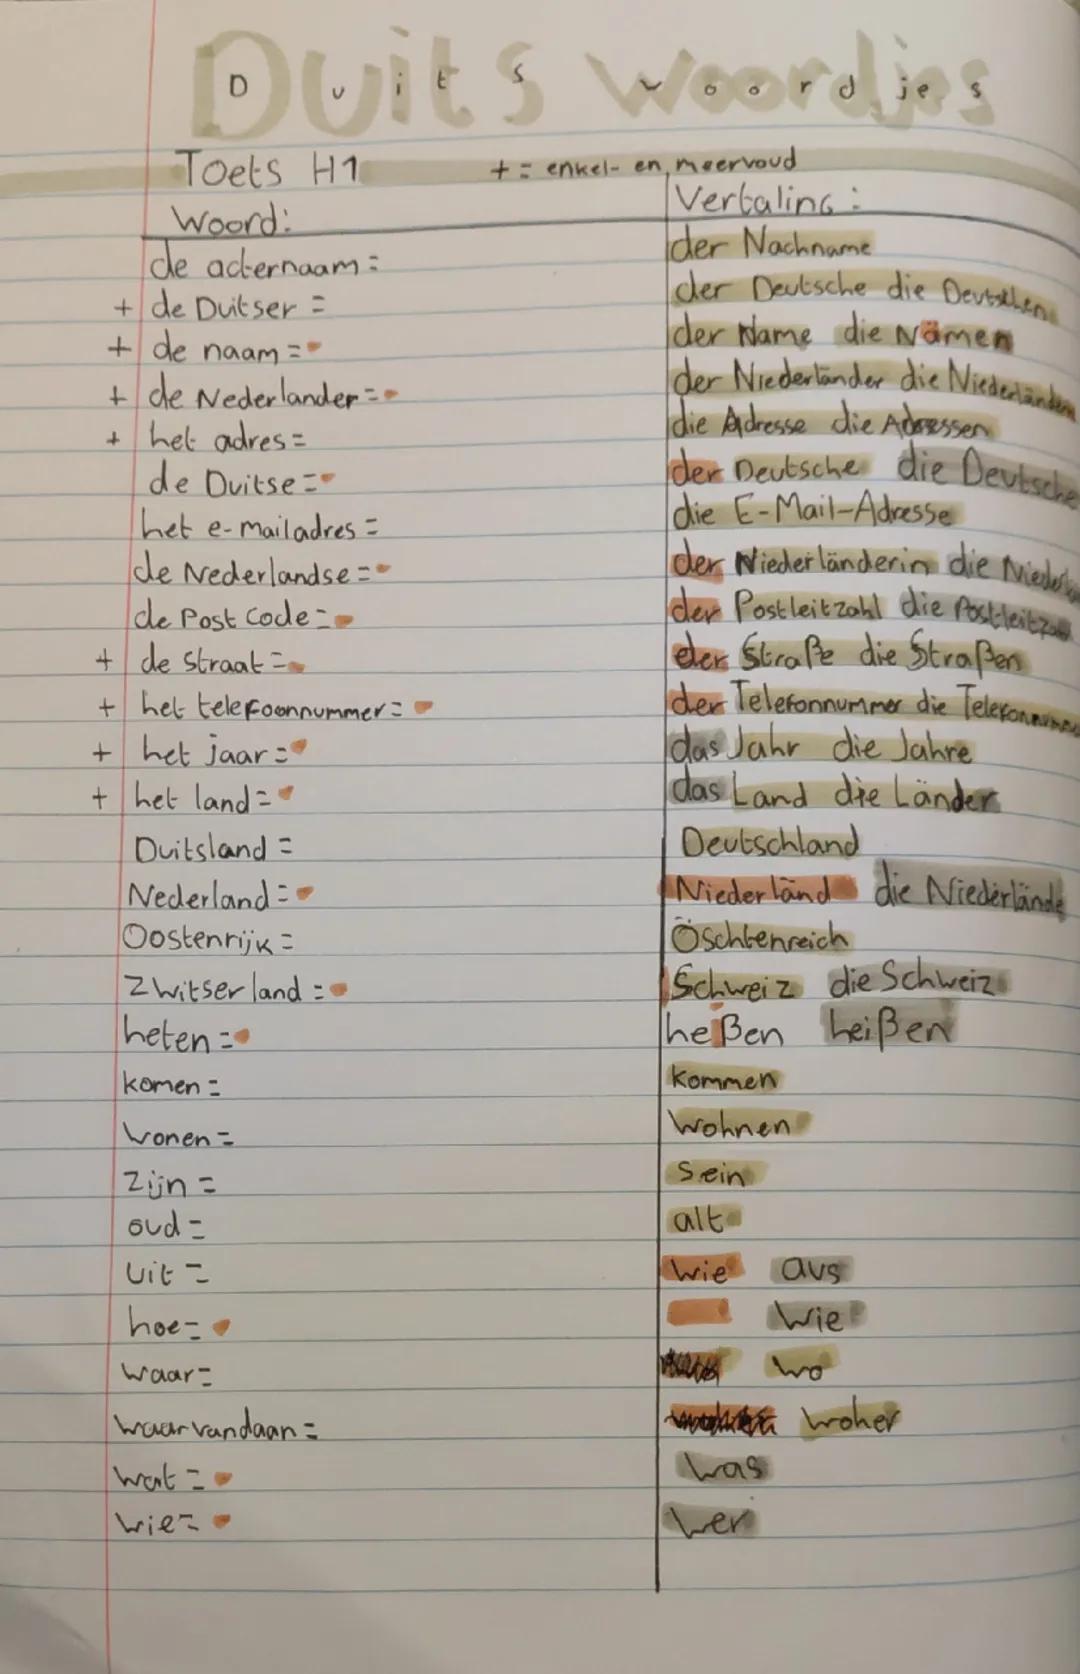 Duits woordjes
Toets H1 + = enkel- en meervoud
Woord: Vertaling:
de acternaam = der Nachname
+ de Duitser = der Deutsche die Deutschen
+ de naam = der Name die Nämen
+ de Nederlander = der Niederländer die Niederländern
+ het adres = die Adresse die Adressen
de Duitse = der Deutsche die Deutsche
het e-mailadres = die E-Mail-Adresse
de Nederlandse = der Niederländerin die
de Post code = der Postleitzahl die Postleitzahl
+ de straat = der Straße die Straßen
+ het telefoonnummer = der Telefonnummer die
+ het jaar = das Jahr die Jahre
+ het land = das Land die Länder
Duitsland = Deutschland
Nederland = Niederländ die Niederlände
Oostenrijk = Öschtenreich
Zwitserland = Schweiz die Schweiz
heten = heßen heißen
komen = kommen
wonen = wohnen
zijn = sein
oud = alt
uit = wie aus
hoe = wie
waar = wo
waarvandaan = woher
wat = was
wie = wer